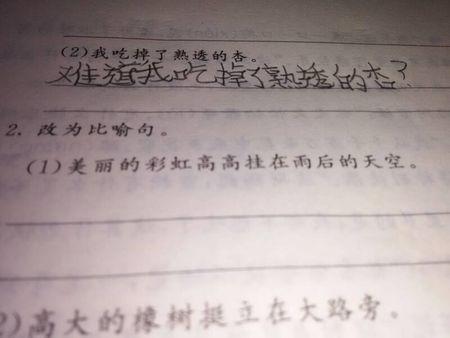 (2)我吃掉了熟透的杏。
难道我吃掉了熟透的杏？
2. 改为比喻句。
(1)美丽的彩虹高高挂在雨后的天空。
2)高大的橡树挺立在大路旁。